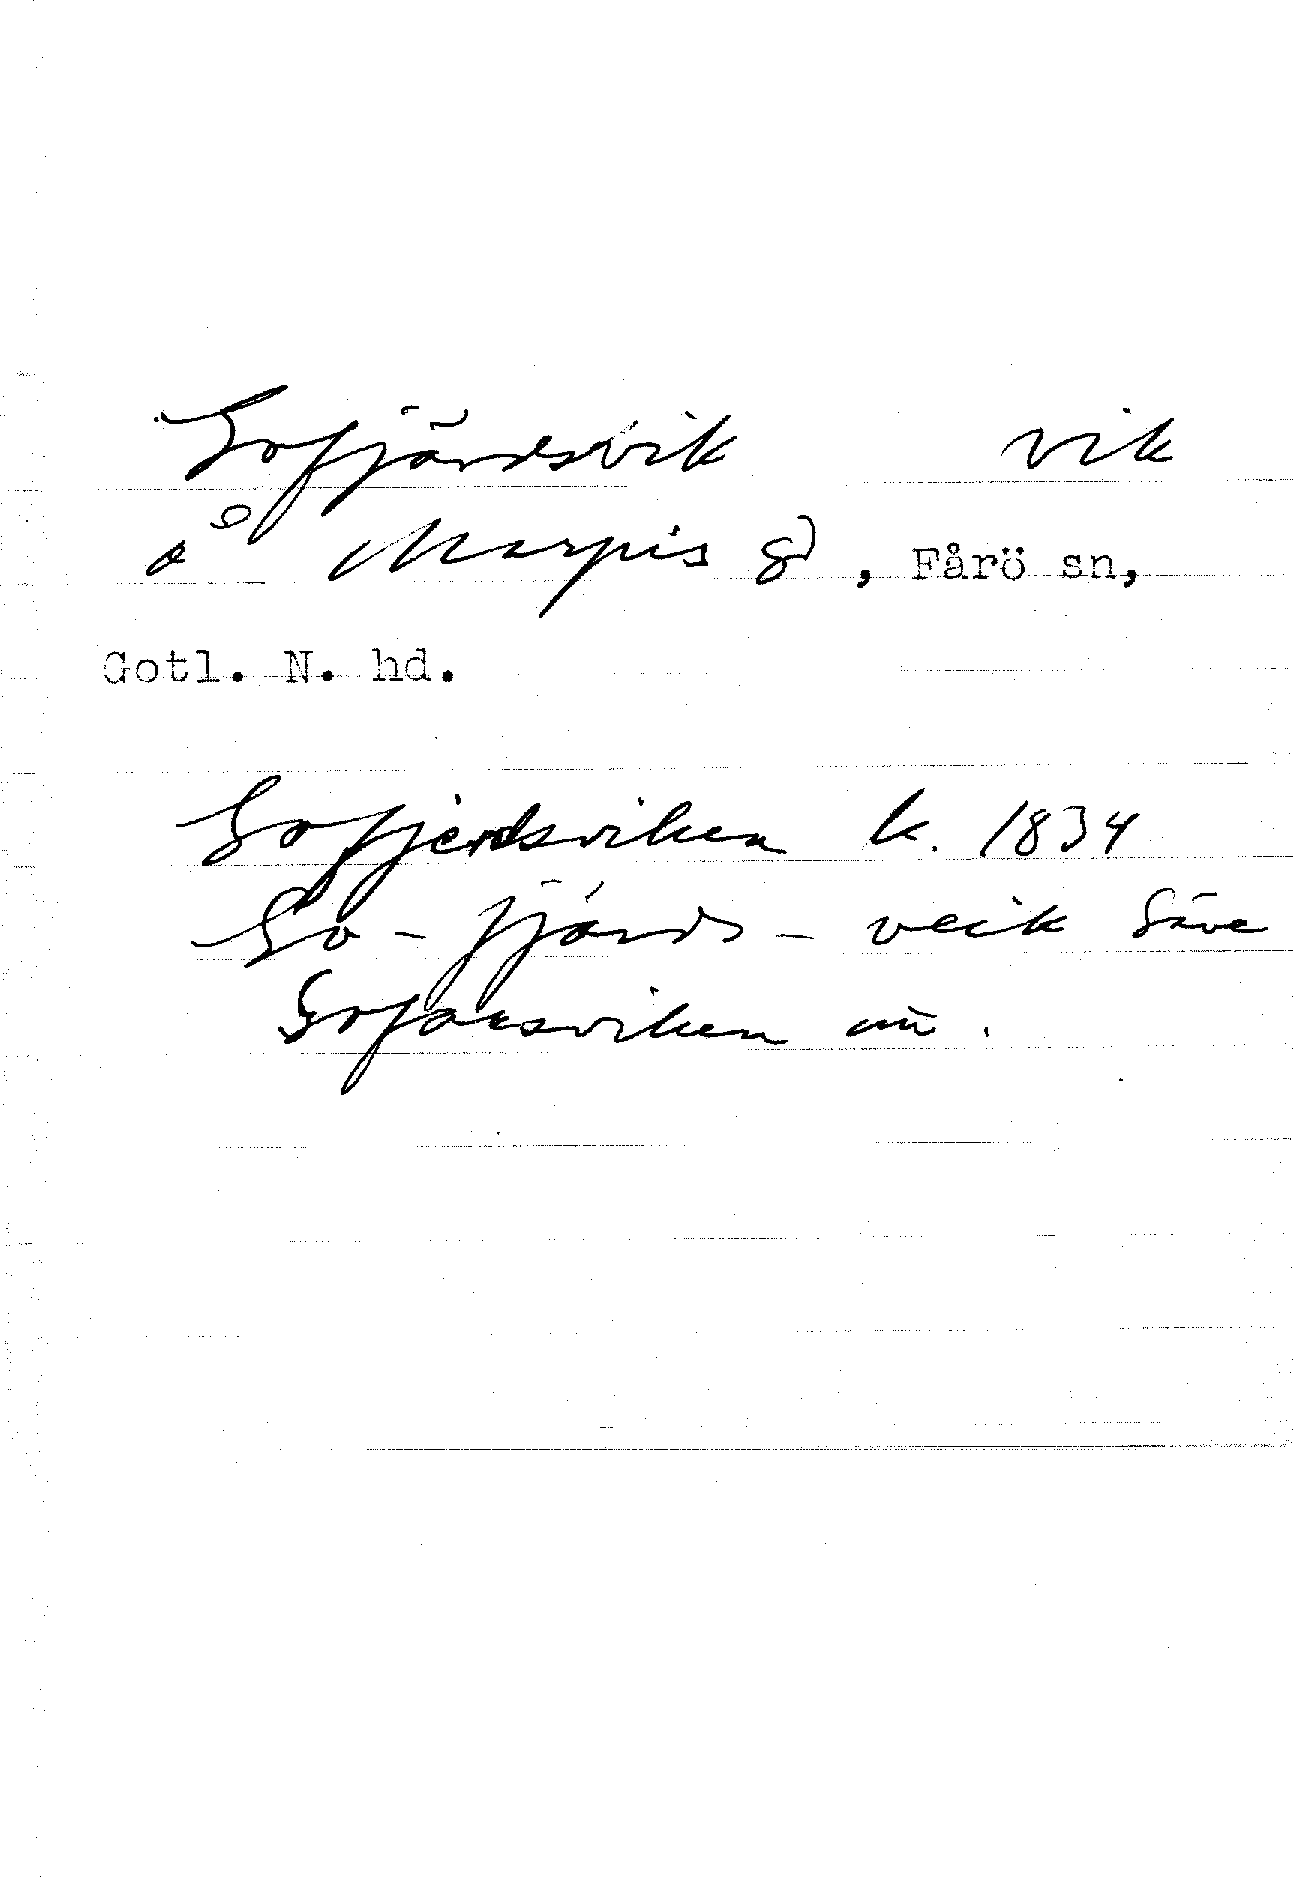 Sofjärdsvik vik
å Marpis gd, Fårö sn,
Gotl. N. hd.
Sofjerdsviken k. 1834
So-fjärds-veik Säve
Sofarsviken nu.